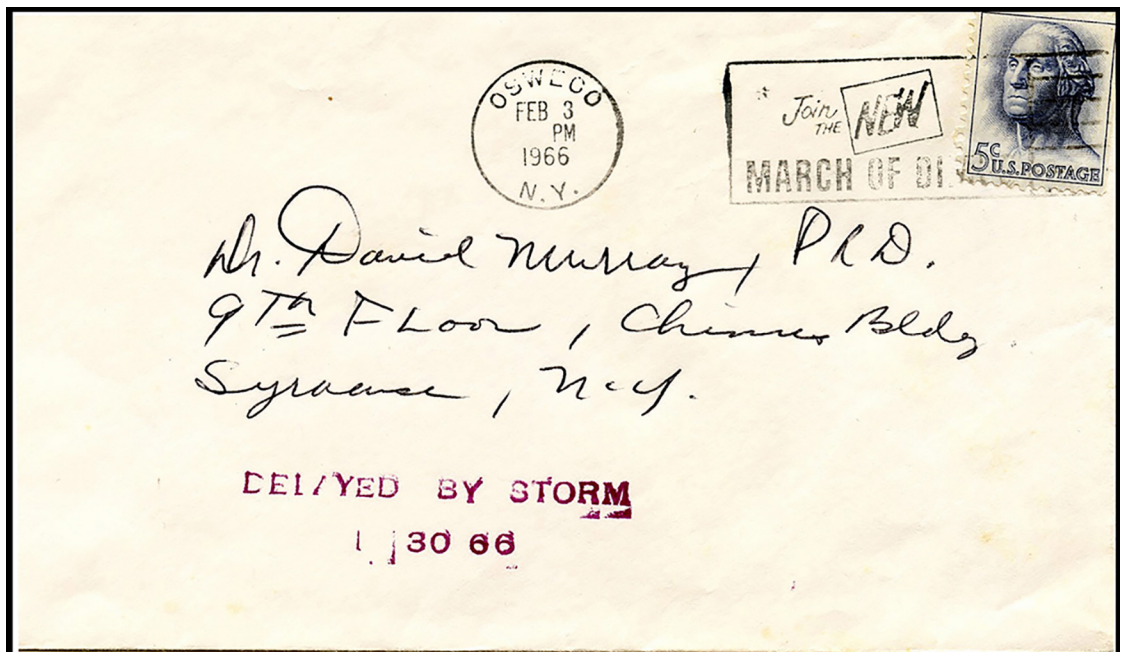 OSWEGO
FEB 3
PM
1966
N.Y.
Join
THE
NEW
MARCH OF DI
5c
U.S. POSTAGE
Dr. David Murray, PhD.
9Th Floor, Chimes Bldg
Syracuse, N.Y.
DELAYED BY STORM
1 30 66